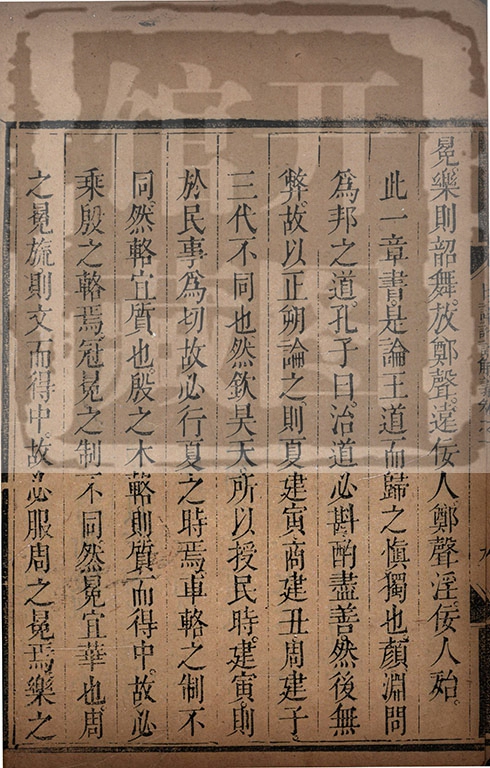 冕樂則韶舞放鄭聲遠佞人鄭聲淫佞人殆
此一章書是論王道而歸之愼獨也顏淵問
爲邦之道孔子曰治道必斟酌盡善然後無
弊故以正朔論之則夏建寅商建丑周建子
三代不同也然欽昊天所以授民時建寅則
於民事爲切故必行夏之時焉車輅之制不
同然輅宜質也殷之木輅則質而得中故必
乘殷之輅焉冠冕之制不同然冕宜華也周
之冕旒則文而得中故必服周之冕焉樂之